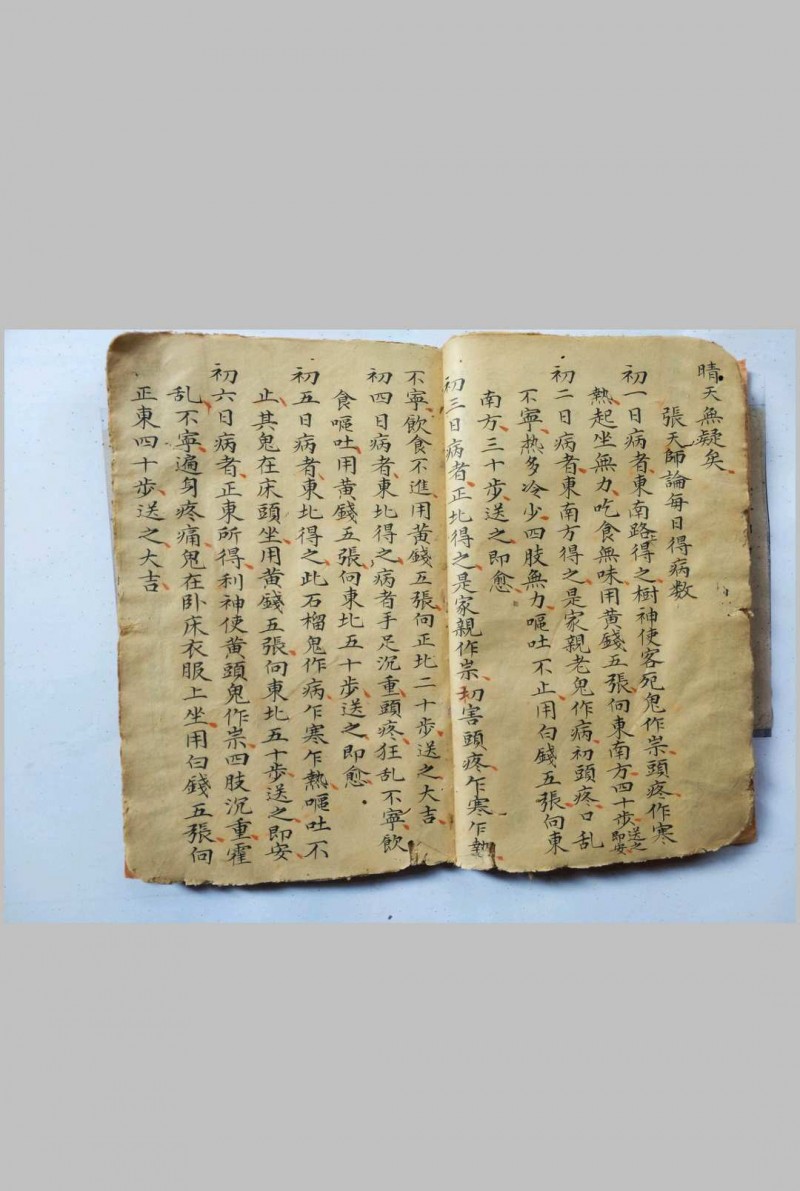 晴天無疑矣
張天師論每日得病數
初一日病者東南路得之樹神使客死鬼作祟頭疼作寒
熱起坐無力吃食無味用黄錢五張向東南方四十步送之即安
初二日病者東南方得之是家親老鬼作病初頭疼口乱
不寧熱多冷少四肢無力嘔吐不止用白錢五張向東
南方三十步送之即愈
初三日病者正北得之是家親作祟初害頭疼乍寒乍熱
不寧飲食不進用黄錢五張向正北二十步送之大吉
初四日病者東北得之病者手足沉重頭疼狂乱不寧飲
食嘔吐用黄錢五張向東北五十步送之即愈
初五日病者東北得之此石榴鬼作病乍寒乍熱嘔吐不
止其鬼在床頭坐用黄錢五張向東北五十步送之即安
初六日病者正東所得利神使黄頭鬼作祟四肢沉重霍
乱不寧遍身疼痛鬼在卧床衣服上坐用白錢五張向
正東四十步送之大吉